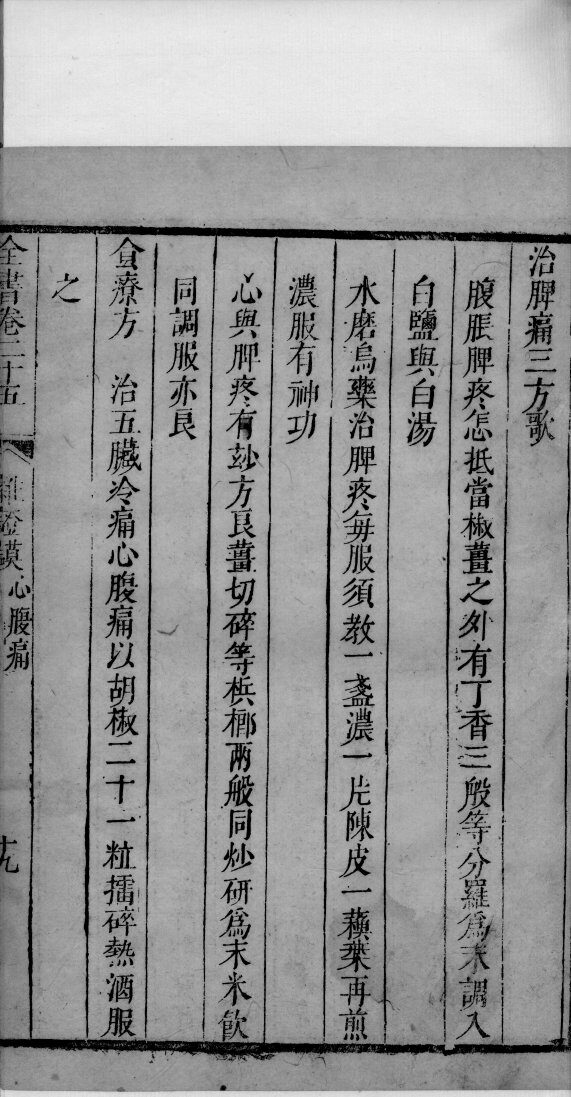 治脾痛三方歌
腹脹脾疼怎抵當椒薑之外有丁香三般等分羅爲末調入
白鹽與白湯
水磨烏藥治脾疼每服須教一盞濃一片陳皮一蘓葉再煎
濃服有神功
心與脾疼有玅方良薑切碎等梹榔兩般同炒研爲末米飲
同調服亦良
食療方 治五臟冷痛心腹痛以胡椒二十一粒擂碎熱酒服
之
全書卷二十五 雜證謨 心腹痛 十九